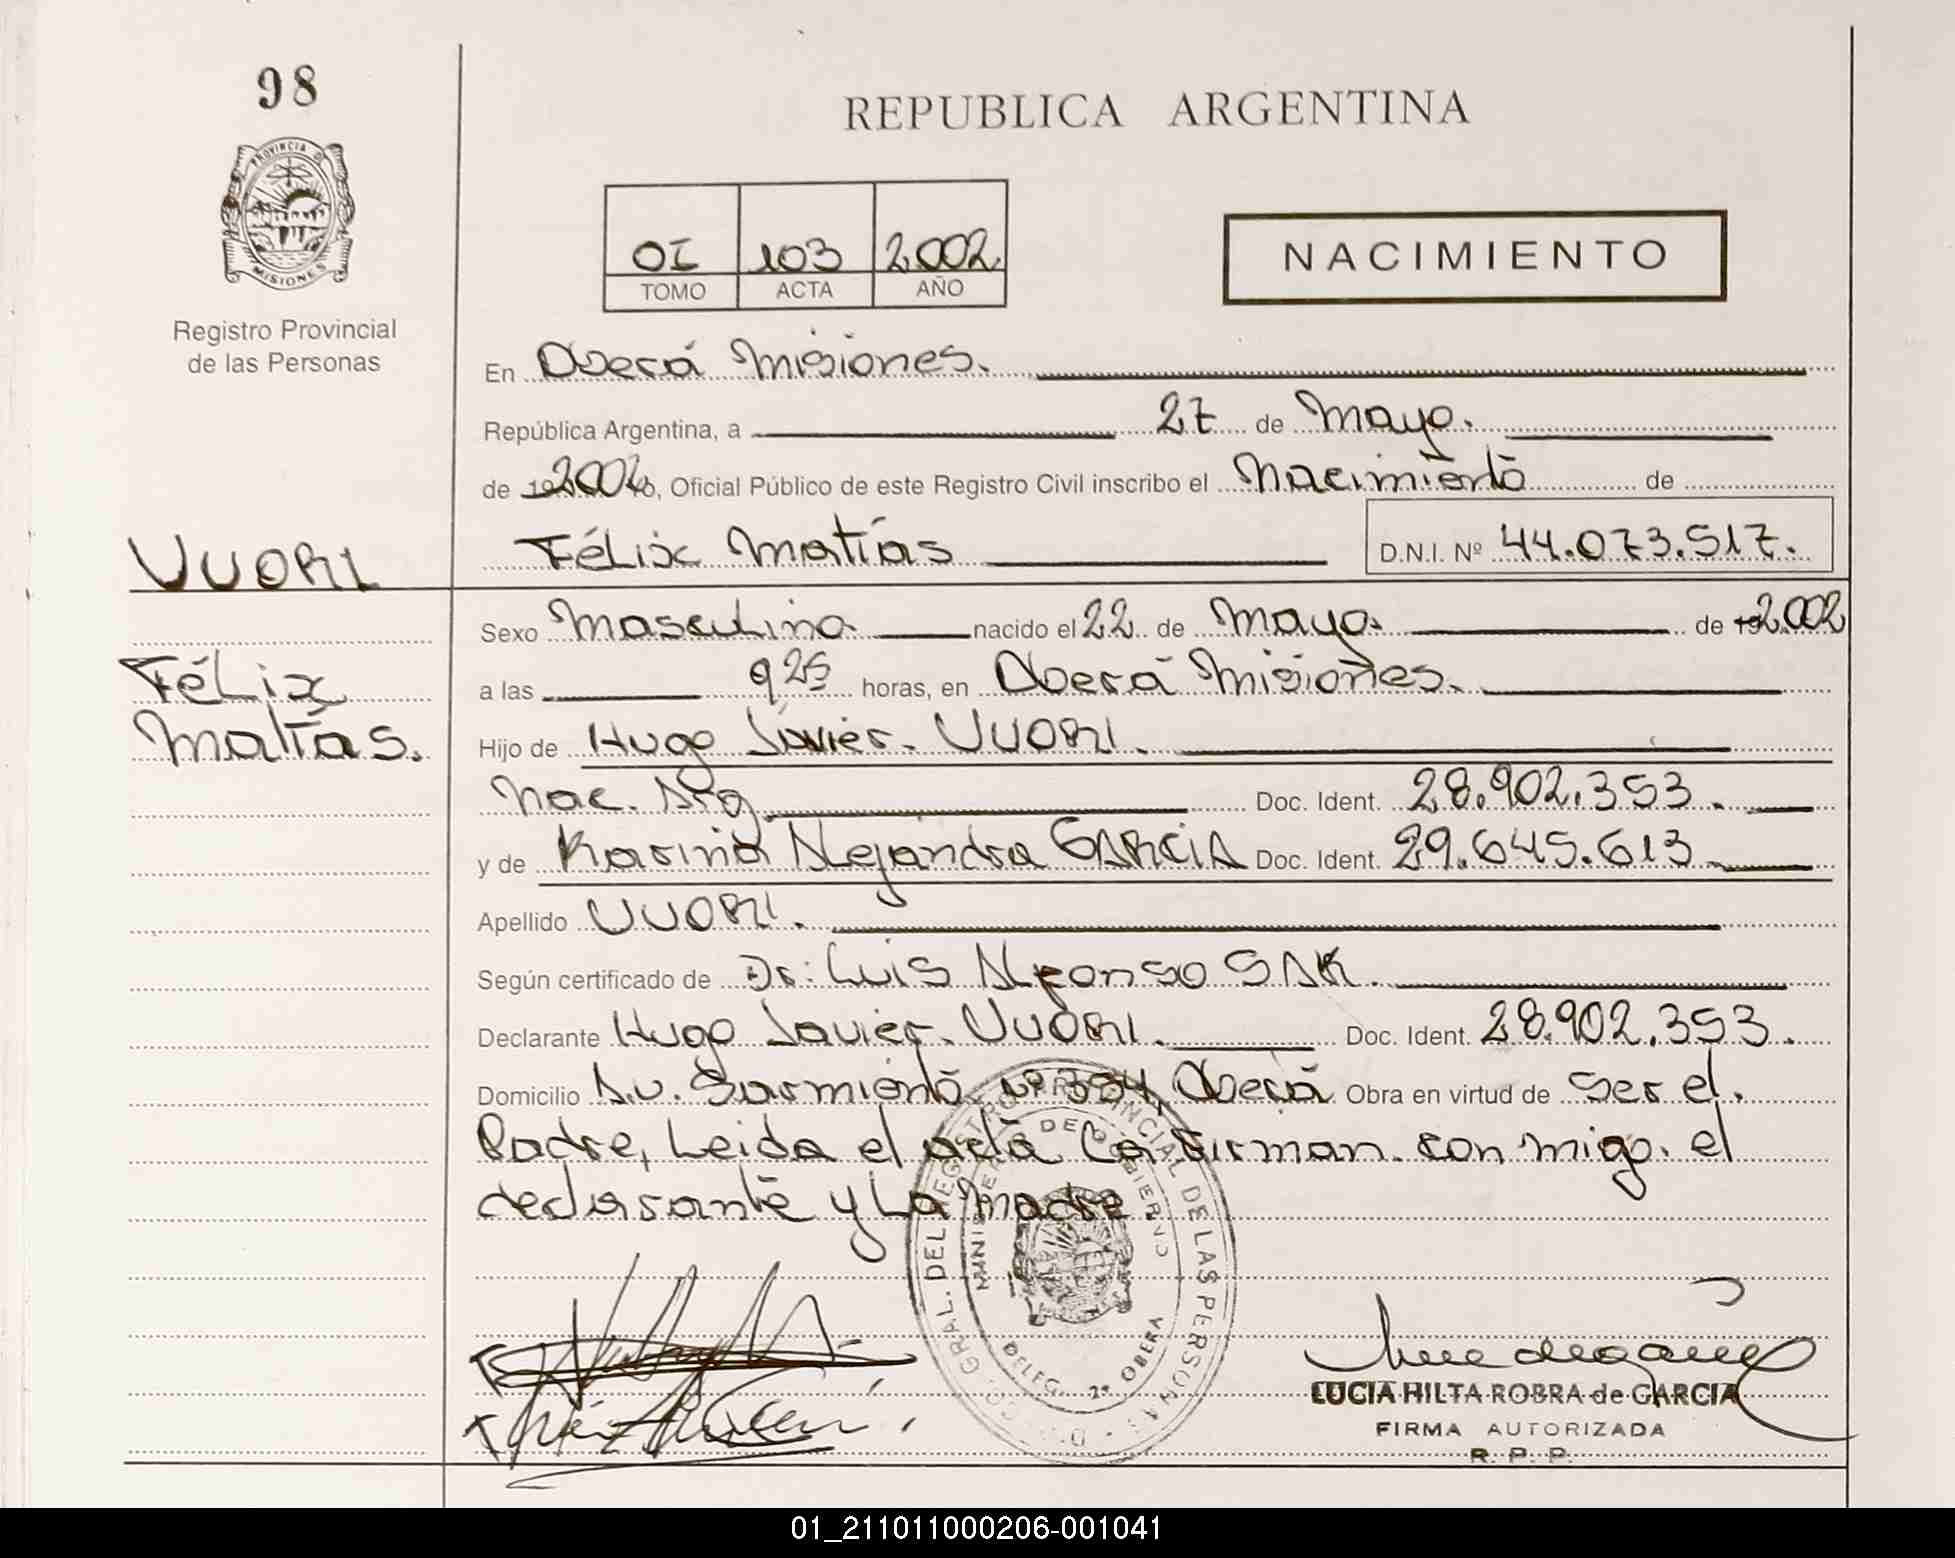 98
REPUBLICA ARGENTINA
PROVINCIA D
MISIONES
Registro Provincial
de las Personas
OI 103 2002
TOMO ACTA AÑO
NACIMIENTO
En Oberá Misiones.
República Argentina, a 27 de Mayo.
de 2002, Oficial Público de este Registro Civil inscribo el Nacimiento de
VUORI
Félix Matías D.N.I. Nº 44.073.517.
Sexo Masculino nacido el 22 de Mayo. de 2.002
Félix
Matías.
a las 9 25 horas, en Oberá Misiones.
Hijo de Hugo Javier. VUORI.
Nac. Arg. Doc. Ident. 28.902.353.
y de Karina Alejandra GARCIA Doc. Ident. 29.645.613
Apellido VUORI.
Según certificado de Dr: Luis Alfonso SAK.
Declarante Hugo Javier. VUORI. Doc. Ident. 28.902.353.
Domicilio Av. Sarmiento Nº 334, Oberá Obra en virtud de ser el.
Padre, Leida el acta La firman con migo. el
declarante y La Madre.
GRAL. DEL REGISTRO PROVINCIAL DE LAS PERSONAS
MINISTERIO DE GOBIERNO
DELEG. 2ª OBERA
LUCIA HILTA ROBRA de GARCIA
FIRMA AUTORIZADA
R. P. P.
01_211011000206-001041